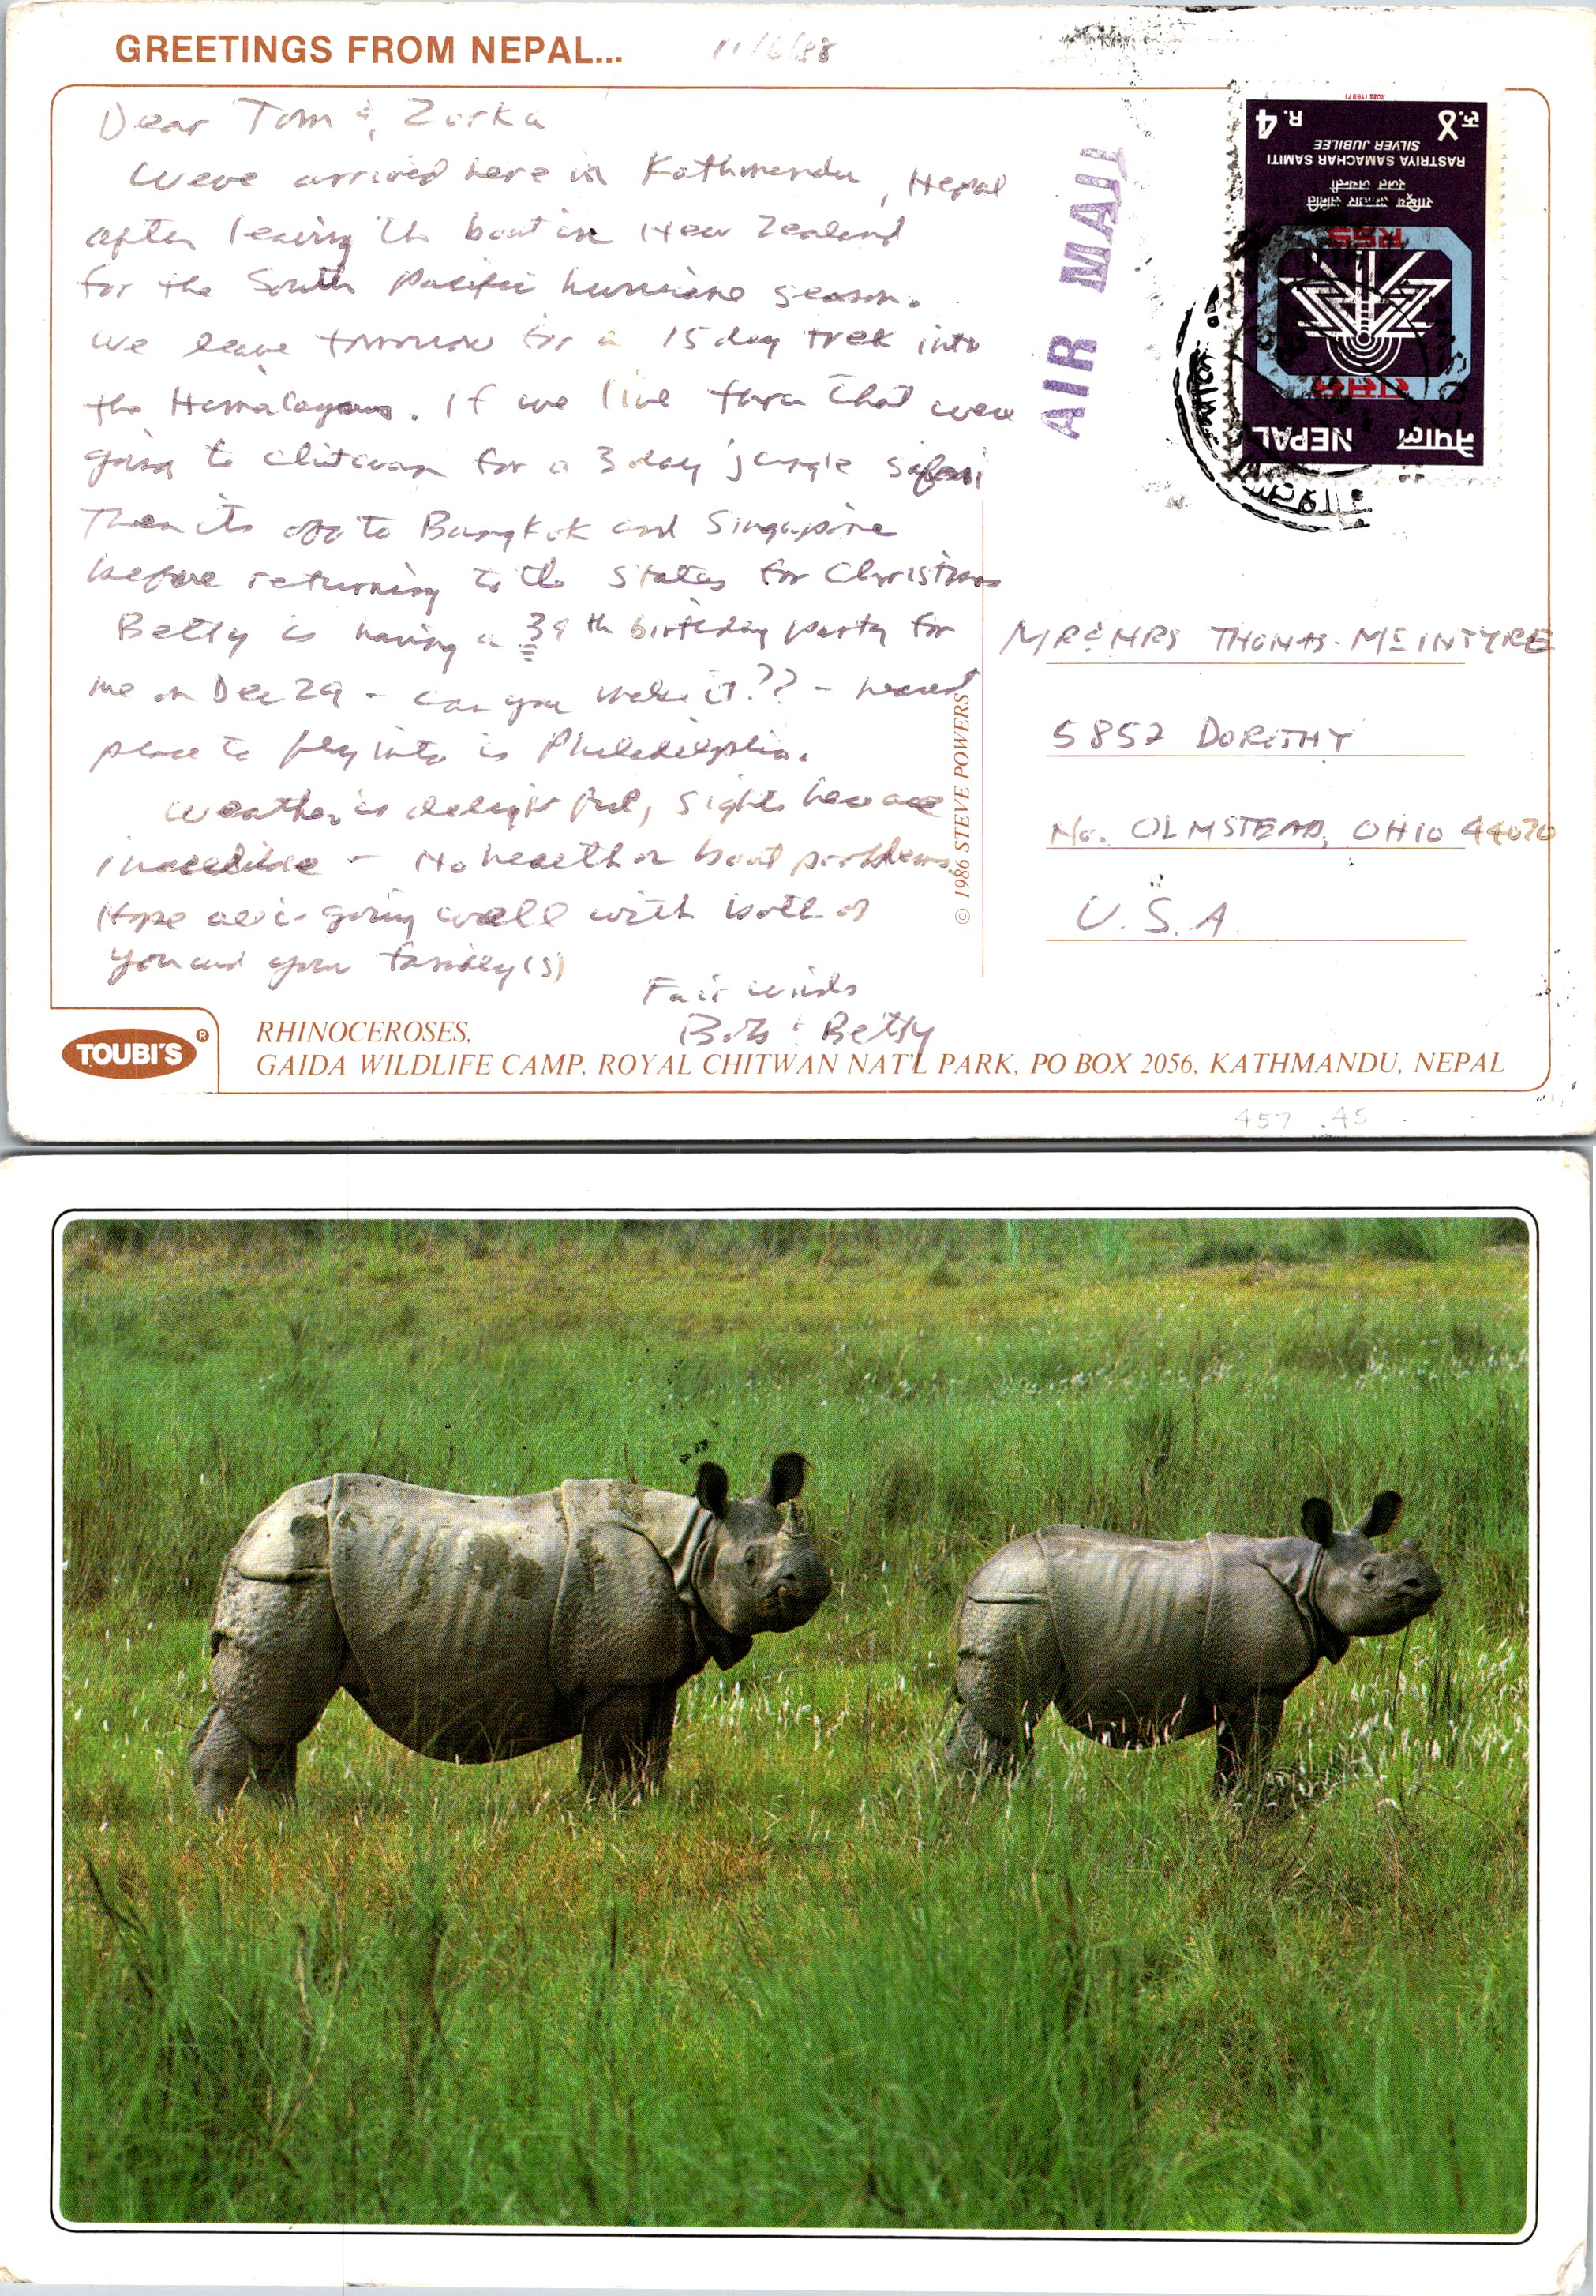 GREETINGS FROM NEPAL...
11/6/88
Dear Tom & Zorka
Weve arrived here in Kathmandu, Nepal
after leaving the boat in New Zealand
for the South Pacific hurricane season.
We leave tomorrow for a 15 day trek into
the Himalayans. If we live thru that were
going to Chitwan for a 3 day jungle safari
Then its off to Bangkok and Singapore
before returning to the States for Christmas
Betty is having a 39th birthday party for
me on Dec 29 - can you make it?? - nearest
place to fly into is Philadelphia.
Weather is delightful, sights here are
incredible - No health or boat problems.
Hope all is going well with both of
you and your family(s)
Fair winds
Bob & Betty
AIR MAIL
2022 (1987)
रु.४ R.4
RASTRIYA SAMACHAR SAMITI
SILVER JUBILEE
राष्ट्रिय समाचार समिति
रजत जयन्ती
RSS
रासस
नेपाल NEPAL
MR & MRS THOMAS McINTYRE
5852 DOROTHY
No. OLMSTEAD, OHIO 44070
U.S.A.
© 1986 STEVE POWERS
TOUBI'S ®
RHINOCEROSES,
GAIDA WILDLIFE CAMP, ROYAL CHITWAN NAT'L PARK, PO BOX 2056, KATHMANDU, NEPAL
457 .45